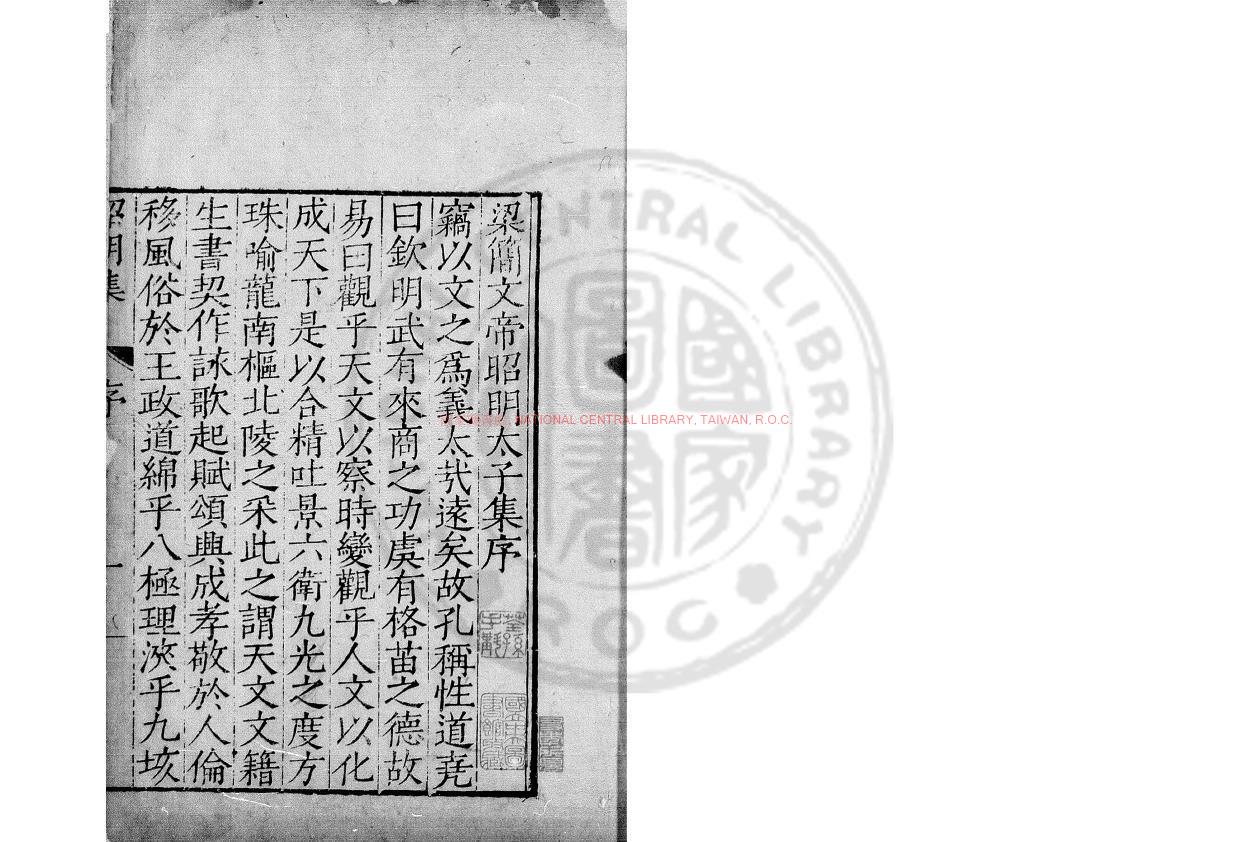 梁簡文帝昭明太子集序
竊以文之爲義太㢤遠矣故孔稱性道堯
曰欽明武有來商之功虞有格苗之德故
易曰觀乎天文以察時變觀乎人文以化
成天下是以含精吐景六衛九光之度方
珠喻龍南樞北陵之采此之謂天文文籍
生書契作詠歌起賦頌興成孝敬於人倫
移風俗於王政道綿乎八極理浹乎九垓
昭明集
序
一
NATIONAL CENTRAL LIBRARY, TAIWAN, R.O.C.
CENTRAL LIBRARY
ROC
國家圖書
國立中央圖書館收藏